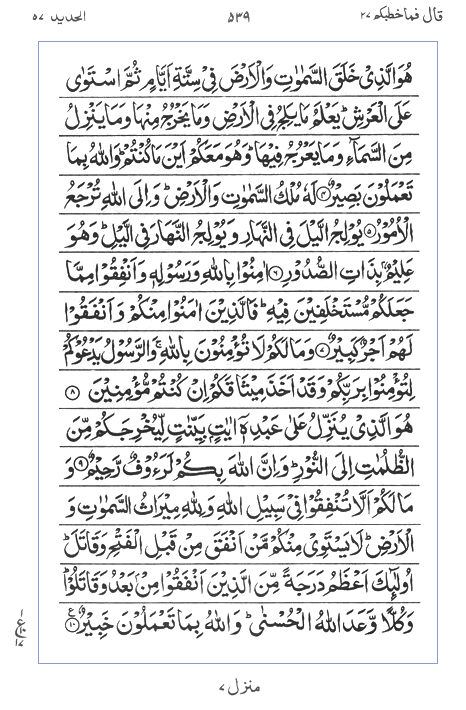 قال فما خطبكم ٢٧ ٥٣٩ الحديد ٥٧
هُوَ الَّذِیْ خَلَقَ السَّمٰوٰتِ وَالْاَرْضَ فِیْ سِتَّةِ اَیَّامٍ ثُمَّ اسْتَوٰی
عَلَی الْعَرْشِ ؕ یَعْلَمُ مَا یَلِجُ فِی الْاَرْضِ وَمَا یَخْرُجُ مِنْهَا وَمَا یَنْزِلُ
مِنَ السَّمَآءِ وَمَا یَعْرُجُ فِیْهَا ؕ وَهُوَ مَعَكُمْ اَیْنَ مَا كُنْتُمْ ؕ وَاللّٰهُ بِمَا
تَعْمَلُوْنَ بَصِیْرٌ ۟﴿۴﴾ لَهٗ مُلْكُ السَّمٰوٰتِ وَالْاَرْضِ ؕ وَاِلَی اللّٰهِ تُرْجَعُ
الْاُمُوْرُ ﴿۵﴾ یُوْلِجُ الَّیْلَ فِی النَّهَارِ وَیُوْلِجُ النَّهَارَ فِی الَّیْلِ ؕ وَهُوَ
عَلِیْمٌۢ بِذَاتِ الصُّدُوْرِ ﴿۶﴾ اٰمِنُوْا بِاللّٰهِ وَرَسُوْلِهٖ وَاَنْفِقُوْا مِمَّا
جَعَلَكُمْ مُّسْتَخْلَفِیْنَ فِیْهِ ؕ فَالَّذِیْنَ اٰمَنُوْا مِنْكُمْ وَاَنْفَقُوْا
لَهُمْ اَجْرٌ كَبِیْرٌ ﴿۷﴾ وَمَا لَكُمْ لَا تُؤْمِنُوْنَ بِاللّٰهِ ۚ وَالرَّسُوْلُ یَدْعُوْكُمْ
لِتُؤْمِنُوْا بِرَبِّكُمْ وَقَدْ اَخَذَ مِیْثَاقَكُمْ اِنْ كُنْتُمْ مُّؤْمِنِیْنَ ﴿۸﴾
هُوَ الَّذِیْ یُنَزِّلُ عَلٰی عَبْدِهٖۤ اٰیٰتٍۭ بَیِّنٰتٍ لِّیُخْرِجَكُمْ مِّنَ
الظُّلُمٰتِ اِلَی النُّوْرِ ؕ وَاِنَّ اللّٰهَ بِكُمْ لَرَءُوْفٌ رَّحِیْمٌ ﴿۹﴾ وَ
مَا لَكُمْ اَلَّا تُنْفِقُوْا فِیْ سَبِیْلِ اللّٰهِ وَلِلّٰهِ مِیْرَاثُ السَّمٰوٰتِ وَ
الْاَرْضِ ؕ لَا یَسْتَوِیْ مِنْكُمْ مَّنْ اَنْفَقَ مِنْ قَبْلِ الْفَتْحِ وَقٰتَلَ ؕ
اُولٰٓىِٕكَ اَعْظَمُ دَرَجَةً مِّنَ الَّذِیْنَ اَنْفَقُوْا مِنْۢ بَعْدُ وَقَاتَلُوْا ؕ
وَكُلًّا وَّعَدَ اللّٰهُ الْحُسْنٰی ؕ وَاللّٰهُ بِمَا تَعْمَلُوْنَ خَبِیْرٌ ﴿۱۰﴾ ع
ع ١٧
منزل ٧